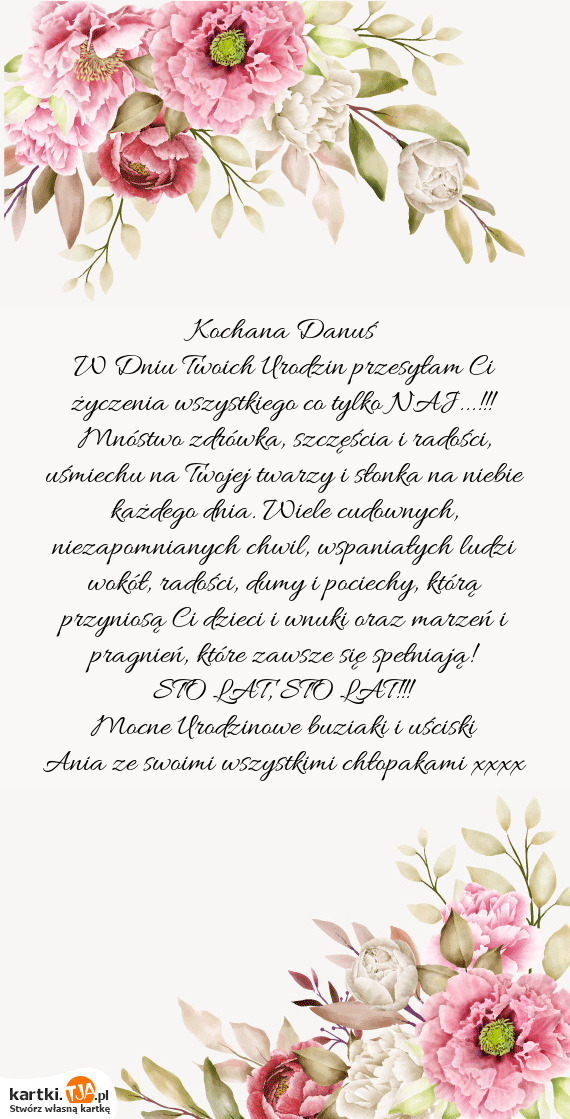 Kochana Danuś
W Dniu Twoich Urodzin przesyłam Ci
życzenia wszystkiego co tylko NAJ...!!!
Mnóstwo zdrówka, szczęścia i radości,
uśmiechu na Twojej twarzy i słonka na niebie
każdego dnia. Wiele cudownych,
niezapomnianych chwil, wspaniałych ludzi
wokół, radości, dumy i pociechy, którą
przyniosą Ci dzieci i wnuki oraz marzeń i
pragnień, które zawsze się spełniają!
STO LAT, STO LAT!!!
Mocne Urodzinowe buziaki i uściski
Ania ze swoimi wszystkimi chłopakami xxxx
kartki.TJA.pl
Stwórz własną kartkę